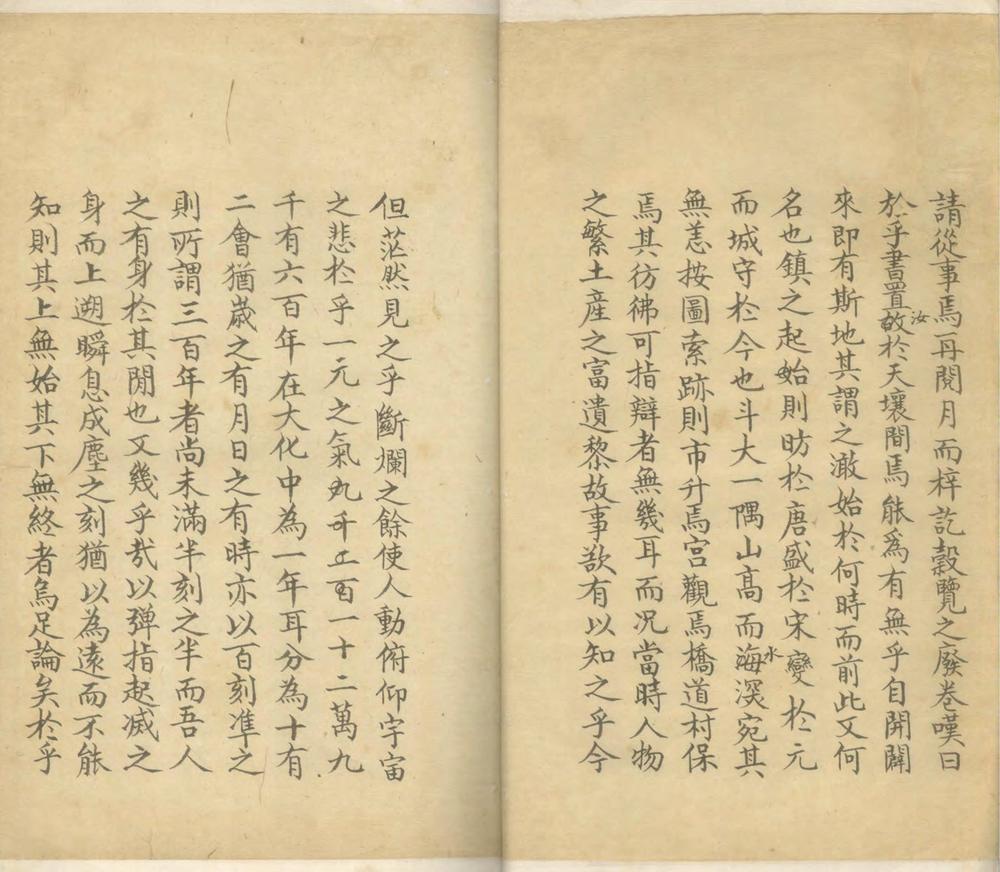 請從事焉再閱月而梓訖穀覽之廢卷嘆曰
於乎書置汝故於天壤間焉能爲有無乎自開闢
來即有斯地其謂之澉始於何時而前此又何
名也鎮之起始則昉於唐盛於宋變於元
而城守於今也斗大一隅山高而海水深宛其
無恙按圖索跡則市升焉宮觀焉橋道村保
焉其彷彿可指辯者無幾耳而况當時人物
之繁土産之富遺黎故事欲有以知之乎今
但茫然見之乎斷爛之餘使人動俯仰宇宙
之悲於乎一元之氣九千五百一十二萬九
千有六百年在大化中為一年耳分為十有
二會猶歲之有月日之有時亦以百刻准之
則所謂三百年者尚未滿半刻之半而吾人
之有身於其閒也又幾乎哉以彈指起滅之
身而上遡瞬息成塵之刻猶以為遠而不能
知則其上無始其下無終者烏足論矣於乎